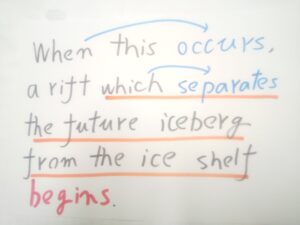 When this occurs,
a rift which separates
the future iceberg
from the ice shelf
begins.